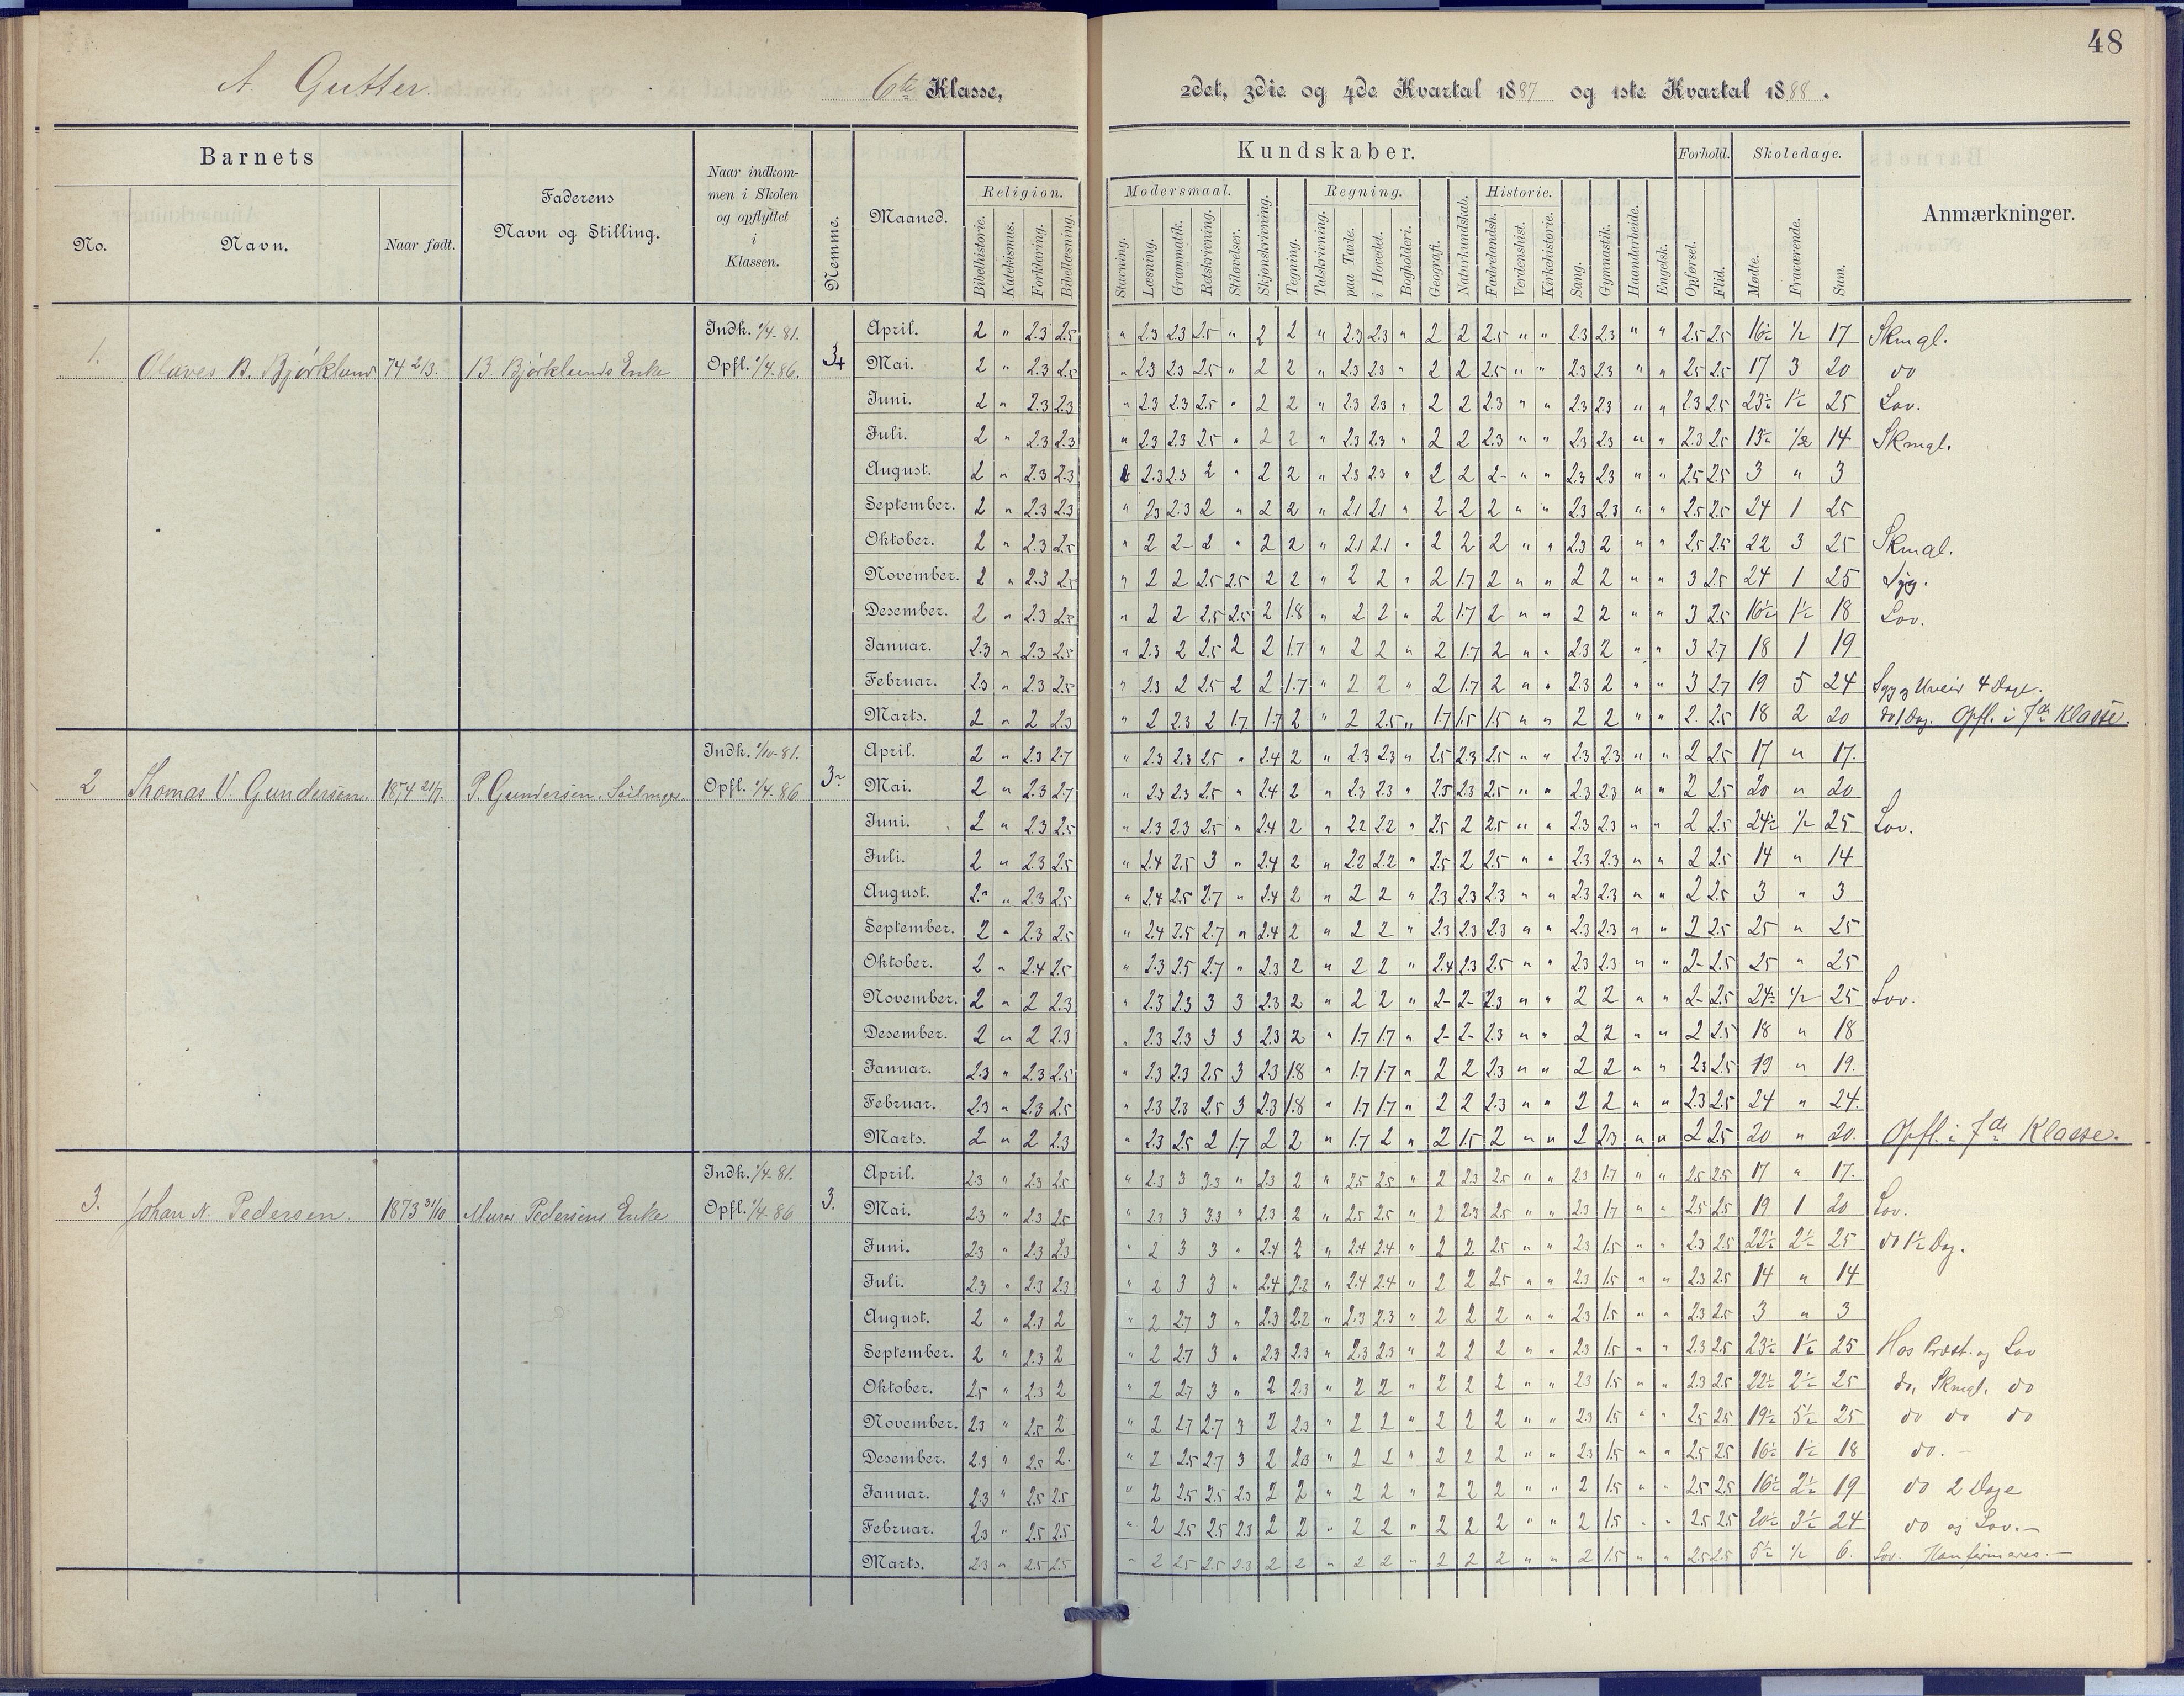 48
A. Gutter. 6te Klasse, 2det, 3die og 4de Kvartal 1887 og 1ste Kvartal 1888.
Barnets
No. Navn. Naar født.
Faderens Navn og Stilling.
Naar indkommen i Skolen og opflyttet i Klassen.
Nemme.
Maaned.
Kundskaber.
Religion. Modersmaal. Regning. Historie.
Bibelhistorie. Katekismus. Forklaring. Bibellæsning.
Stavning. Læsning. Grammatik. Retskrivning. Stiløvelser. Skjønskrivning. Tegning. Talskrivning. paa Tavle. i Hovedet. Bogholderi. Geografi. Naturkundskab. Fædrelandsh. Verdenshist. Kirkehistorie. Sang. Gymnastik. Haandarbeide. Engelsk.
Forhold.
Opførsel. Flid.
Skoledage.
Mødte. Fraværende. Sum.
Anmærkninger.
1. Olaves B. Bjørklund 74 2/3. B. Bjørklunds Enke Indk. 1/4-81. Opfl. 1/4.86.
April. 2 " 2.3 2.5 " 2.3 2.3 2.5 " 2 2 " 2.3 2.3 " 2 2 2.5 " " 2.3 2.3 " " 2.5 2.5 16½ ½ 17 Skmgl.
Mai. 2 " 2.3 2.5 " 2.3 2.3 2.5 " 2 2 " 2.3 2.3 " 2 2 2.5 " " 2.3 2.3 " " 2.5 2.5 17 3 20 do
Juni. 2 " 2.3 2.3 " 2.3 2.3 2.5 " 2 2 " 2.3 2.3 " 2 2 2.3 " " 2.3 2.3 " " 2.3 2.5 23½ 1½ 25 Lov.
Juli. 2 " 2.3 2.3 " 2.3 2.3 2.5 " 2 2 " 2.3 2.3 " 2 2 2.3 " " 2.3 2.3 " " 2.3 2.5 13½ 1/2 14 Skmgl.
August. 2 " 2.3 2.3 2.3 2.3 2 " 2 2 " 2.3 2.3 " 2 2 2- " " 2.3 2.3 " " 2.5 2.5 3 " 3
September. 2 " 2.3 2.3 " 2.3 2.3 2 " 2 2 " 2.1 2.1 " 2 2 2 " " 2.3 2.3 " " 2.5 2.5 24 1 25
Oktober. 2 " 2.3 2.5 " 2 2- 2 " 2 2 " 2.1 2.1 " 2 2 2 " " 2.3 2 " " 2.5 2.5 22 3 25 Skmgl.
November. 2 " 2.3 2.5 " 2 2 2.5 2.5 2 2 " 2 2 " 2 1.7 2 " " 2 2 " " 3 2.5 24 1 25 Syg.
Desember. 2 " 2.3 2.5 " 2 2 2.5 2.5 2 1.8 " 2 2 " 2 1.7 2 " " 2 2 " " 3 2.5 16½ 1½ 18 Lov.
Januar. 2.3 " 2.3 2.5 " 2.3 2 2.5 2 2 1.7 " 2 2 " 2 1.7 2 " " 2.3 2 " " 3 2.7 18 1 19
Februar. 2.3 " 2.3 2.5 " 2.3 2 2.5 2 2 1.7 " 2 2 " 2 1.7 2 " " 2.3 2 " " 3 2.7 19 5 24 Syg og Uveir 4 Dage.
Marts. 2 " 2 2.3 " 2 2.3 2 1.7 1.7 2 " 2 2.5 " 1.7 1.5 1.5 " " 2 2 " " 2. 2.5 18 2 20 do 1 Dag. Opfl. i 7de Klasse.
2 Thomas V. Gundersen. 1874 21/7. P. Gundersen, Seilmager. Indk. 1/10-81. Opfl. 1/4.86
April. 2 " 2.3 2.7 " 2.3 2.3 2.5 " 2.4 2 " 2.3 2.3 " 2.5 2.3 2.5 " " 2.3 2.3 " " 2 2.5 17 " 17.
Mai. 2 " 2.3 2.7 " 2.3 2.3 2.5 " 2.4 2 " 2.3 2.3 " 2.5 2.3 2.5 " " 2.3 2.3 " " 2 2.5 20 " 20
Juni. 2 " 2.3 2.5 " 2.3 2.3 2.5 " 2.4 2 " 2.2 2.2 " 2.5 2 2.5 " " 2.3 2.3 " " 2 2.5 24½ ½ 25 Lov.
Juli. 2 " 2.3 2.5 " 2.4 2.5 3 " 2.4 2 " 2.2 2.2 " 2.5 2 2.5 " " 2.3 2.3 " " 2 2.5 14 " 14
August. 2 " 2.3 2.5 " 2.4 2.5 2.7 " 2.4 2 " 2 2 " 2.3 2.3 2.3 " " 2.3 2.3 " " 2 2.5 3 " 3
September. 2 " 2.3 2.5 " 2.4 2.5 2.7 " 2.4 2 " 2 2 " 2.3 2.3 2.3 " " 2.3 2.3 " " 2 2.5 25 " 25
Oktober. 2 " 2.4 2.5 " 2.3 2.5 2.7 " 2.3 2 " 2 2 " 2.4 2.3 2.5 " " 2.3 2.3 " " 2- 2.5 25 " 25
November. 2 " 2 2.3 " 2.3 2.3 3 3 2.3 2 " 2 2 " 2- 2- 2.3 " " 2 2 " " 2- 2.5 24½ ½ 25 Lov.
Desember. 2 " 2 2.3 " 2.3 2.3 3 3 2.3 2 " 1.7 1.7 " 2- 2- 2.3 " " 2 2 " " 2 2.5 18 " 18
Januar. 2.3 " 2.3 2.5 " 2.3 2.3 2.5 3 2.3 1.8 " 1.7 1.7 " 2 2 2.3 " " 2 2 " " 2.3 2.5 19 " 19.
Februar. 2.3 " 2.3 2.5 " 2.3 2.3 2.5 3 2.3 1.8 " 1.7 1.7 " 2 2 2.3 " " 2 2 " " 2.3 2.5 24 " 24.
Marts. 2 " 2 2.3 " 2.3 2.5 2 1.7 2 2 " 1.7 2 " 2 1.5 2 " " 2 2.3 " " 2 2.5 20 " 20. Opfl. i 7de Klasse.
3. Johan N. Pedersen. 1873 31/10 Murer Pedersens Enke Indk. 1/4-81. Opfl. 1/4.86 3.
April. 2.3 " 2.3 2.5 " 2.3 3 3.3 " 2.3 2 " 2.5 2.5 " 2 2.3 2.5 " " 2.3 1.7 " " 2.5 2.5 17 " 17.
Mai. 2.3 " 2.3 2.5 " 2.3 3 3.3 " 2.3 2 " 2.5 2.5 " 2 2.3 2.5 " " 2.3 1.7 " " 2.5 2.5 19 1 20 Lov.
Juni. 2.3 " 2.3 2.3 " 2 3 3 " 2.4 2 " 2.4 2.4 " 2 2 2.5 " " 2.3 1.5 " " 2.3 2.5 22½ 2½ 25 do 1½ Dag.
Juli. 2.3 " 2.3 2.3 " 2 3 3 " 2.4 2.2 " 2.4 2.4 " 2 2 2.5 " " 2.3 1.5 " " 2.3 2.5 14 " 14
August. 2 " 2.3 2 " 2 2.7 3 " 2.3 2.2 " 2.3 2.3 " 2 2 2 " " 2.3 1.5 " " 2.3 2.5 3 " 3
September. 2 " 2.3 2 " 2 2.7 3 " 2.3 2.3 " 2.3 2.3 " 2 2 2 " " 2.3 1.5 " " 2.3 2.5 23½ 1½ 25 Hos Præst. og Lov
Oktober. 2.5 " 2.3 2 " 2 2.7 3 " 2 2.3 " 2 2 " 2 2 2 " " 2.3 1.5 " " 2.3 2.5 22½ 2½ 25 do, Skmgl. do
November. 2.3 " 2.5 2 " 2 2.7 2.7 3 2 2.3 " 2 2 " 2 2 2 " " 2.3 1.5 " " 2.5 2.5 19½ 5½ 25 do do do
Desember. 2.3 " 2.5 2. " 2 2.5 2.7 3 2 2.3 " 2 2 " 2 2 2 " " 2.3 1.5 " " 2.5 2.5 16½ 1½ 18 do. -
Januar. 2.3 " 2.5 2.5 " 2 2.5 2.5 2.3 2 2 " 2 2 " 2 2 2 " " 2 1.5 " " 2.5 2.5 16½ 2½ 19 do 2 Dage
Februar. 2.3 " 2.5 2.5 " 2 2.5 2.5 2.3 2 2 " 2 2 " 2 2 2 " " 2 1.5 " " 2.5 2.5 20½ 3½ 24 do og Lov. -
Marts. 2.3 " 2.5 2.5 " 2 2.5 2.5 2.3 2 2 " 2 2 " 2 2 2 " " 2 1.5 " " 2.5 2.5 5½ ½ 6. Lov. Konfirmeres. -